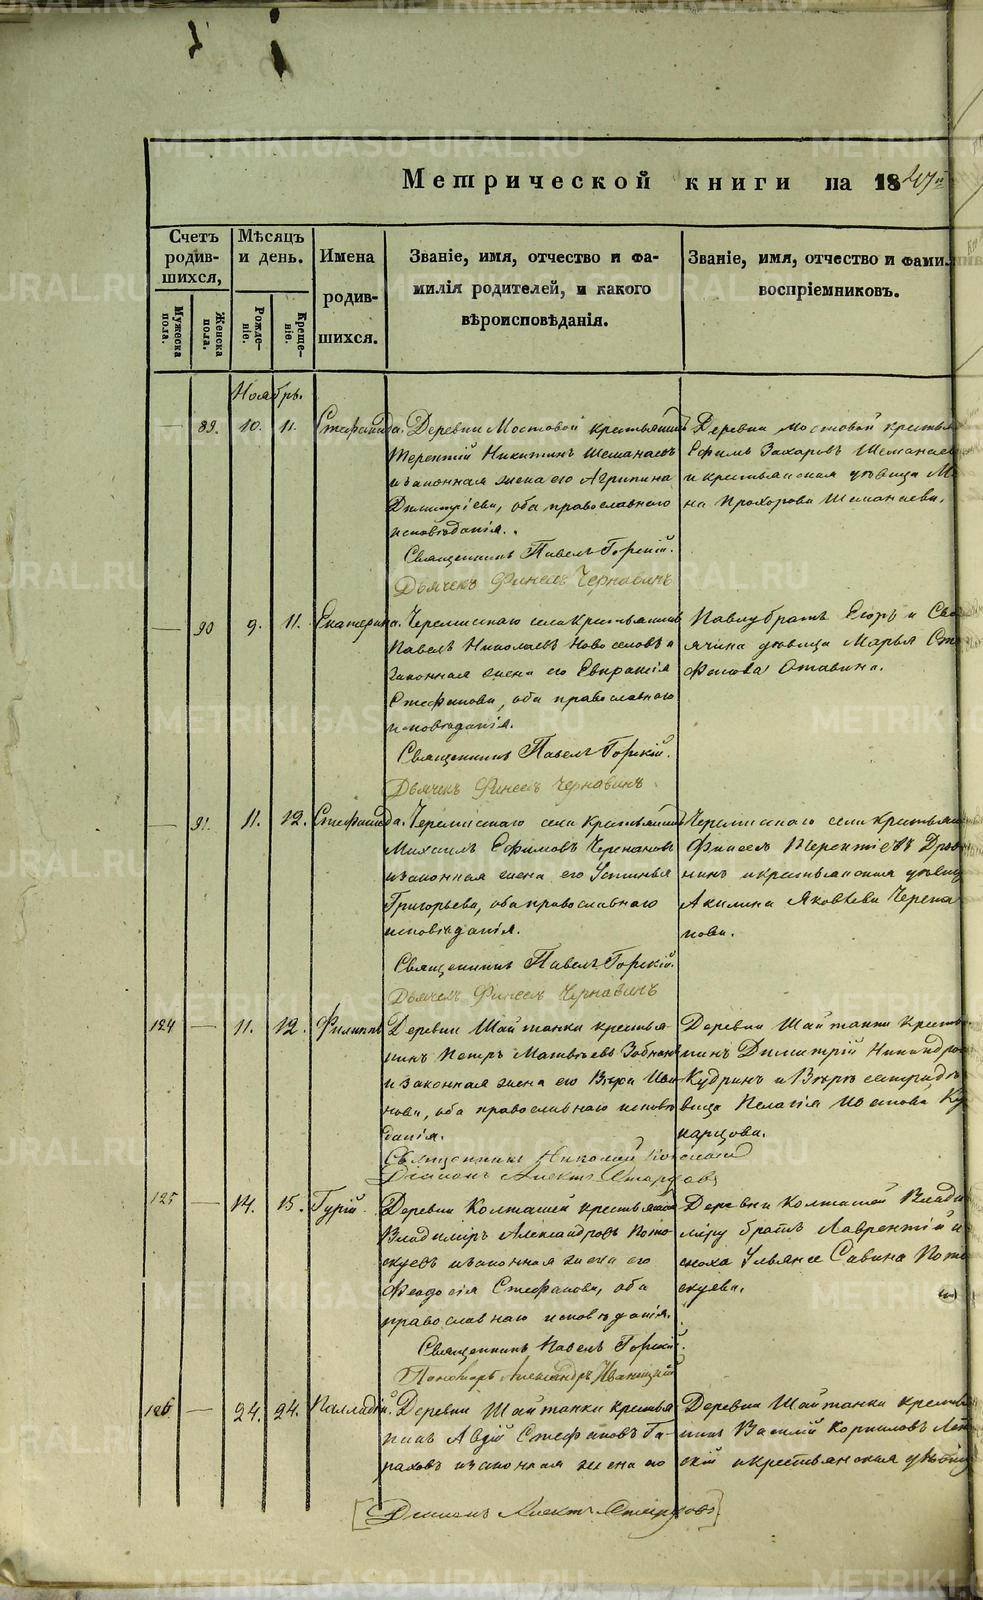 Метрической книги на 1847й
Счетъ родившихся,
Мужеска пола.
Женска пола.
Мѣсяцъ и день.
Рожденіе.
Крещеніе.
Имена родившихся.
Званіе, имя, отчество и фамилія родителей, и какого вѣроисповѣданія.
Званіе, имя, отчество и фами
воспріемниковъ.
Ноябрь.
89. 10. 11. Стефанида. Деревни Мостовой крестьянинъ
Терентій Никитинъ Шеманаевъ
и законная жена его Агрипина
Димитріева, оба православнаго
исповѣданія.
Священникъ Павелъ Горскій.
Дьячекъ Финеесъ Чернавинъ
Деревни Мостовой крестья
Ефимъ Захаровъ Шеманаев
и крестьянская дѣвица
на Прохорова Шеманаева.
90 9. 11. Екатерина. Черемисскаго села крестьянинъ
Павелъ Николаевъ Новоселовъ и
законная жена его Евпраксія
Стефанова, оба православнаго
исповѣданія.
Священникъ Павелъ Горскій.
Дьячекъ Финеесъ Чернавинъ
Павлу братъ Егоръ и Сво
ячина дѣвица Марья Сте
фанова
91. 11. 12. Стефанида. Черемисскаго села крестьянинъ
Михаилъ Ефимовъ Черепановъ
и законная жена его Устинья
Григорьева, оба православнаго
исповѣданія.
Священникъ Павелъ Горскій.
Дьячекъ Финеесъ Чернавинъ
Черемисскаго села крестьян
Финеесъ Терентіевъ
и крестьянская дѣвица
Акилина Яковлева Черепа
нова.
124 11. 12. Филиппъ Деревни Шайтанки крестья-
нинъ Петръ Матвѣевъ Зобнинъ
и законная жена его Вѣра Ива
нова, оба православнаго исповѣ
данія.
Священникъ Николай
Діаконъ
Деревни Шайтанки крестья
нинъ Димитрій Никандров
Кудринъ и Вѣрѣ сестра дѣ
вица Пелагія Иванова
125 14. 15. Гурій. Деревни Колташей крестьянинъ
Владиміръ Александровъ Пото
скуевъ и законная жена его
Феодосія Стефанова, оба
православнаго исповѣданія.
Священникъ Павелъ Горскій.
Пономарь Александръ Иваницкій
Деревни Колташей Влади
міру братъ Лаврентій и
сноха Ульяна Савина Пото
скуева.
126 24. 24. Палладій. Деревни Шайтанки крестья
нинъ Авдій Стефановъ Та-
раховъ и законная жена его
Деревни Шайтанки крестья
нинъ Василій Корниловъ
скій и крестьянская дѣвица
Діаконъ
METRIKI.GASO-URAL.RU